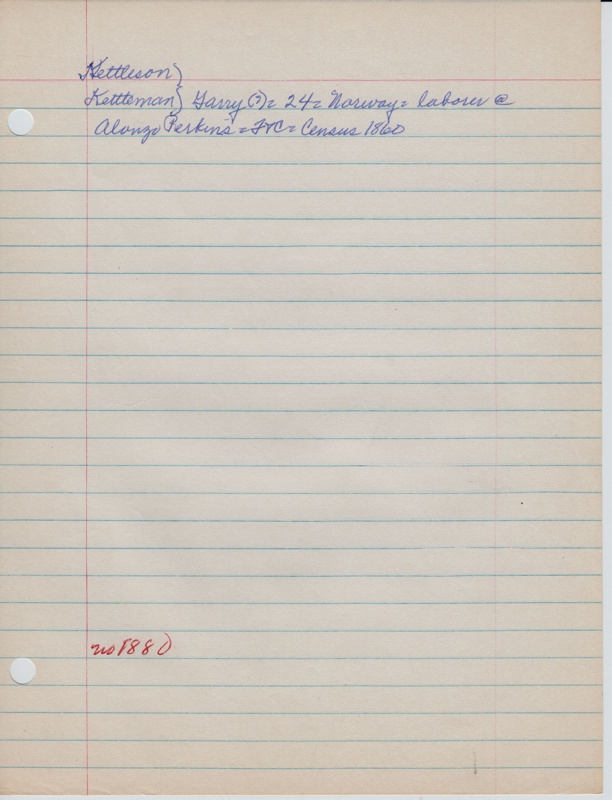 Kettleson}
Kettleman} Garry (?) = 24 = Norway = laborer @
Alonzo Perkins' = = Census 1860
no 1880